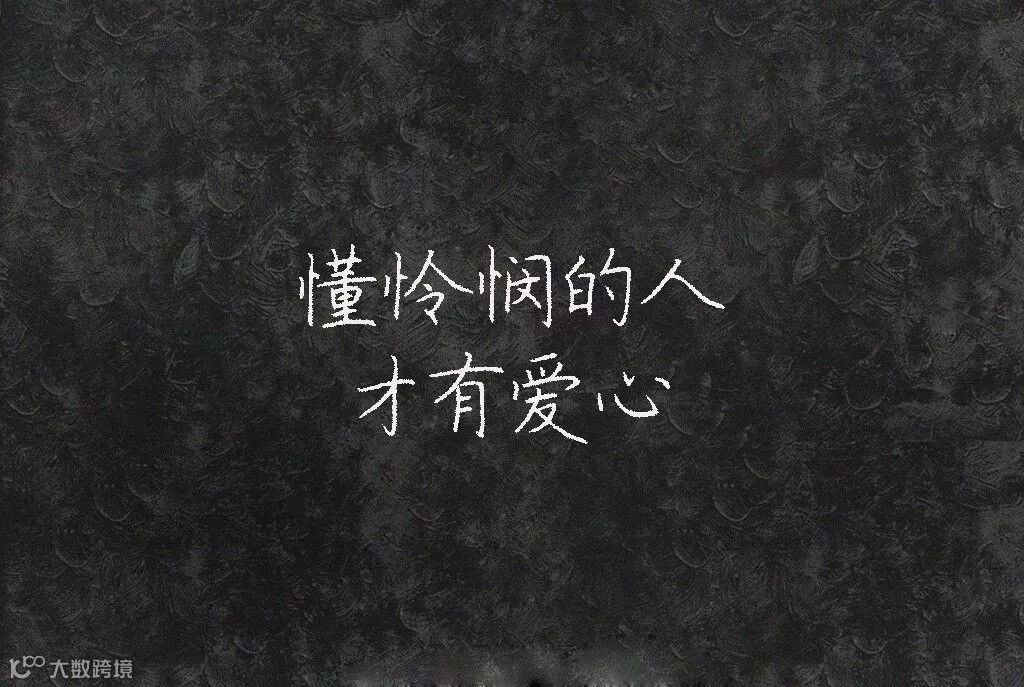 懂怜悯的人
才有爱心
大数跨境